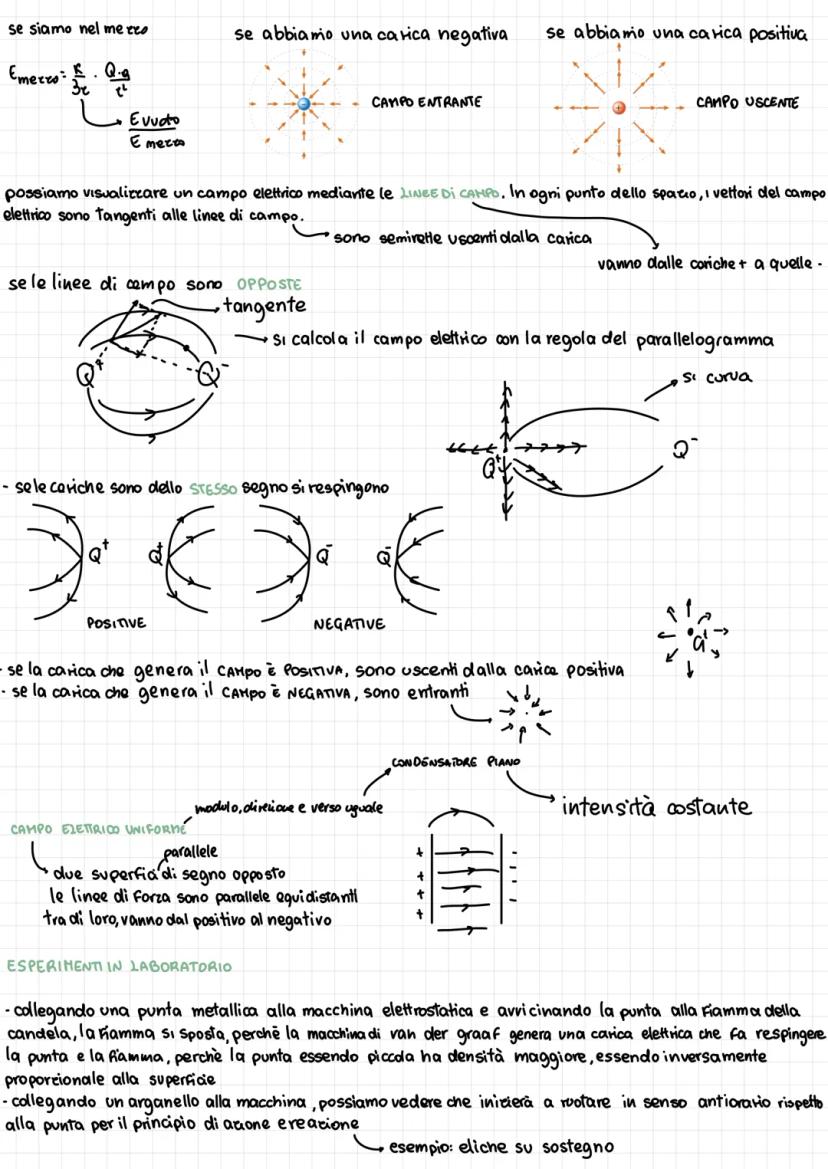 se siamo nel mezzo
se abbiamo una carica negativa
se abbiamo una carica positiva
E mezzo = K/ · Q·q/r²
E vuoto
E mezzo
CAMPO ENTRANTE
CAMPO USCENTE
possiamo visualizzare un campo elettrico mediante le LINEE DI CAMPO. In ogni punto dello spazio, i vettori del campo
elettrico sono tangenti alle linee di campo.
sono semirette uscenti dalla carica
vanno dalle cariche + a quelle -
se le linee di campo sono OPPOSTE
tangente
si calcola il campo elettrico con la regola del parallelogramma
Q⁺ Q⁻
si curva
Q⁺ Q⁻
- se le cariche sono dello STESSO segno si respingono
Q⁺ Q⁺ Q⁻ Q⁻
POSITIVE
NEGATIVE
- se la carica che genera il CAMPO È POSITIVA, sono uscenti dalla carica positiva
- se la carica che genera il CAMPO È NEGATIVA, sono entranti
CONDENSATORE PIANO
modulo, direzione e verso uguale
intensità costante
CAMPO ELETTRICO UNIFORME
parallele
due superfici di segno opposto
le linee di forza sono parallele equidistanti
tra di loro, vanno dal positivo al negativo
+ -
+ -
+ -
+ -
ESPERIMENTI IN LABORATORIO
- collegando una punta metallica alla macchina elettrostatica e avvicinando la punta alla fiamma della
candela, la fiamma si sposta, perchè la macchina di van der graaf genera una carica elettrica che fa respingere
la punta e la fiamma, perchè la punta essendo piccola ha densità maggiore, essendo inversamente
proporzionale alla superficie
- collegando un arganello alla macchina, possiamo vedere che inizierà a ruotare in senso antiorario rispetto
alla punta per il principio di azione e reazione
esempio: eliche su sostegno